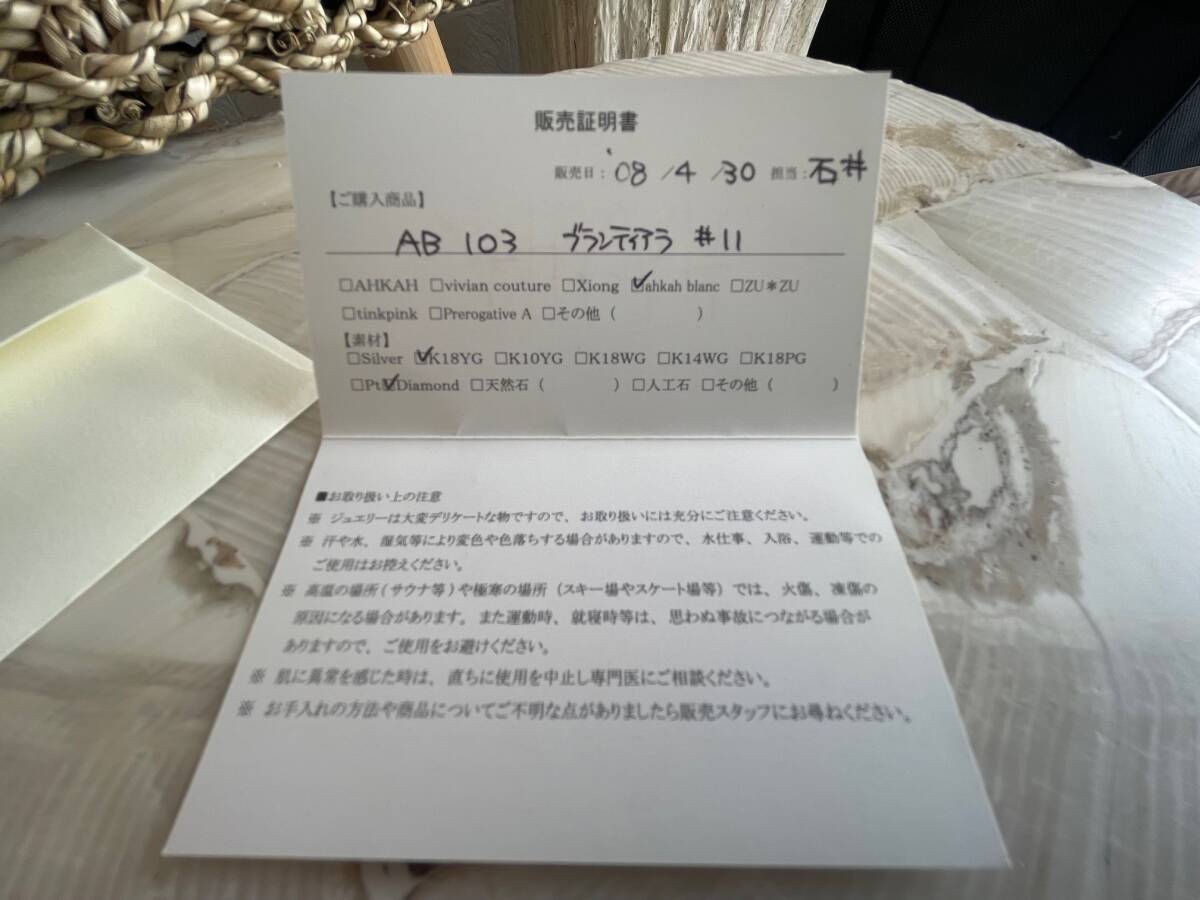 販売証明書
販売日：'08/4/30 担当：石井
【ご購入商品】
AB 103 ブランティアラ #11
□AHKAH □vivian couture □Xiong ☑ahkah blanc □ZU＊ZU
□tinkpink □Prerogative A □その他（　　　　）
【素材】
□Silver ☑K18YG □K10YG □K18WG □K14WG □K18PG
□Pt ☑Diamond □天然石（　　　　）□人工石 □その他（　　　　）
■お取り扱い上の注意
※ ジュエリーは大変デリケートな物ですので、お取り扱いには充分にご注意ください。
※ 汗や水、湿気等により変色や色落ちする場合がありますので、水仕事、入浴、運動等での
ご使用はお控えください。
※ 高温の場所（サウナ等）や極寒の場所（スキー場やスケート場等）では、火傷、凍傷の
原因になる場合があります。また運動時、就寝時等は、思わぬ事故につながる場合が
ありますので、ご使用をお避けください。
※ 肌に異常を感じた時は、直ちに使用を中止し専門医にご相談ください。
※ お手入れの方法や商品についてご不明な点がありましたら販売スタッフにお尋ねください。